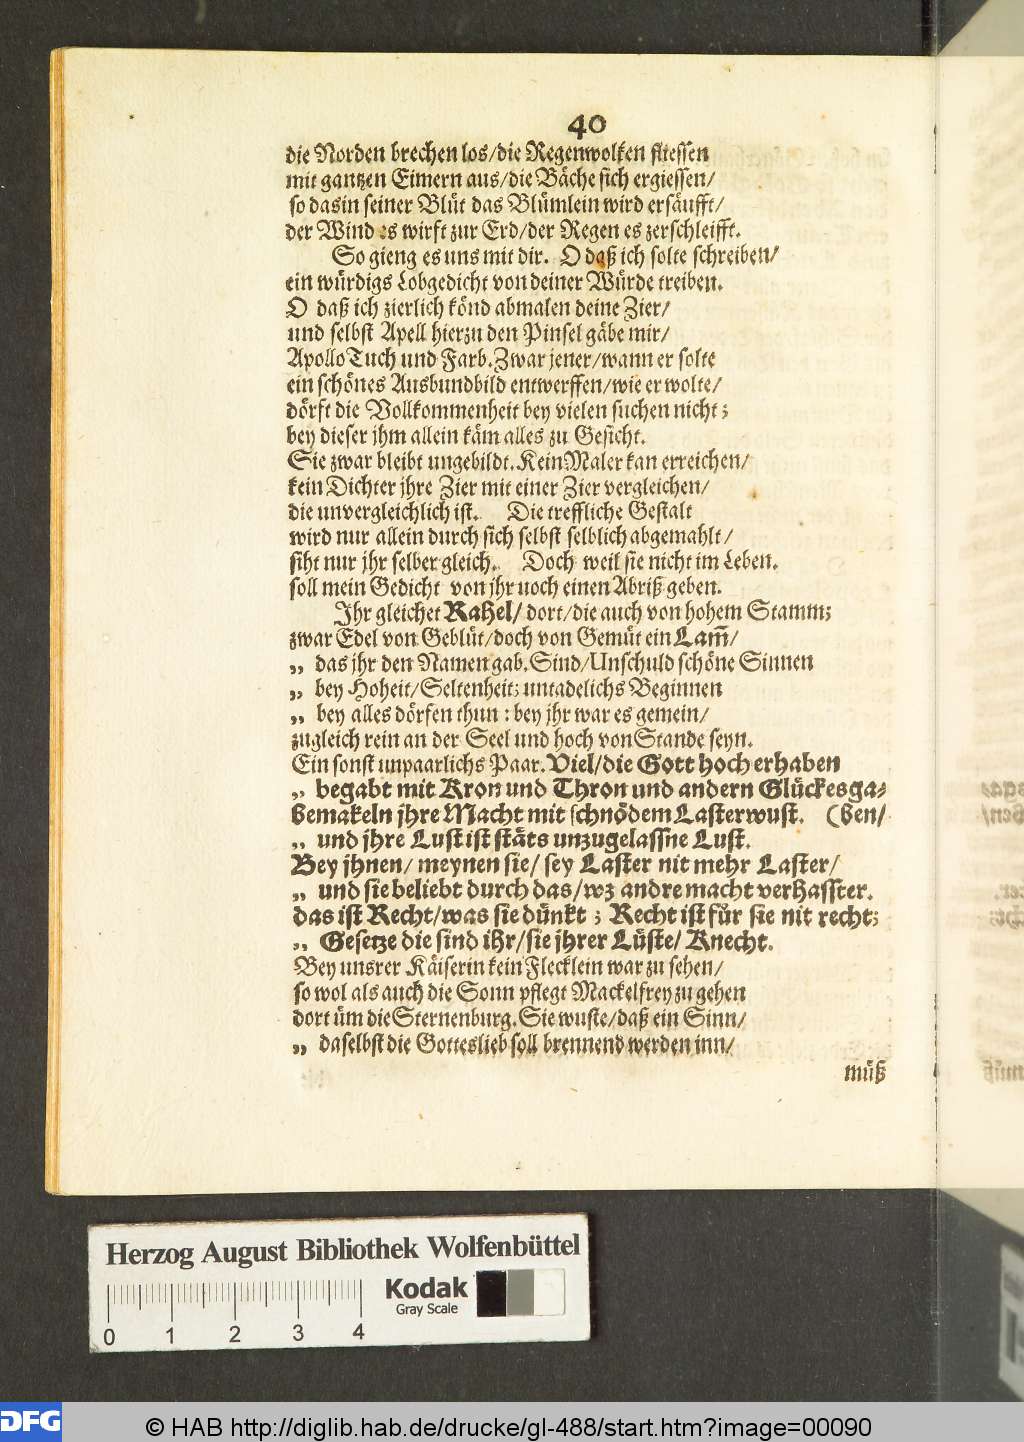 40
die Norden brechen los/die Regenwolken fliessen
mit gantzen Eimern aus/die Bäche sich ergiessen/
so dasin seiner Blüt das Blümlein wird ersäufft/
der Wind es wirft zur Erd/der Regen es zerschleifft.
So gieng es uns mit dir. O daß ich solte schreiben/
ein würdigs Lobgedicht von deiner Würde treiben.
O daß ich zierlich könd abmalen deine Zier/
und selbst Apell hierzu den Pinsel gäbe mir/
Apollo Tuch und Farb. Zwar jener/wann er solte
ein schönes Ausbundbild entwerffen/wie er wolte/
dörft die Vollkommenheit bey vielen suchen nicht;
bey dieser jhm allein käm alles zu Gesicht.
Sie zwar bleibt ungebildt. Kein Maler kan erreichen/
kein Dichter jhre Zier mit einer Zier vergleichen/
die unvergleichlich ist. Die treffliche Gestalt
wird nur allein durch sich selbst selblich abgemahlt/
siht nur jhr selber gleich. Doch weil sie nicht im Leben.
soll mein Gedicht von jhr uoch einen Abriß geben.
Jhr gleichet Rahel/ dort/die auch von hohem Stamm;
zwar Edel von Geblüt/doch von Gemüt ein Lam̃/
„ das jhr den Namen gab. Sind/Unschuld schöne Sinnen
„ bey Hoheit/Seltenheit; untadelichs Beginnen
„ bey alles dörfen thun : bey jhr war es gemein/
zugleich rein an der Seel und hoch von Stande seyn.
Ein sonst unpaarlichs Paar. Viel/die Gott hoch erhaben
„ begabt mit Kron und Thron und andern Glückesga-
bemakeln jhre Macht mit schnödem Lasterwust. (ben/
„ und jhre Lust ist stäts unzugelassne Lust.
Bey jhnen/ meynen sie/ sey Laster nit mehr Laster/
„ und sie beliebt durch das/wz andre macht verhasster.
das ist Recht/was sie dünkt ; Recht ist für sie nit recht;
„ Gesetze die sind ihr/sie jhrer Lüste/ Knecht.
Bey unsrer Käiserin kein Flecklein war zu sehen/
so wol als auch die Sonn pflegt Mackelfrey zu gehen
dort üm die Sternenburg. Sie wuste/daß ein Sinn/
„ daselbst die Gotteslieb soll brennend werden inn/
müß
Herzog August Bibliothek Wolfenbüttel
Kodak
Gray Scale
0 1 2 3 4
DFG
© HAB http://diglib.hab.de/drucke/gl-488/start.htm?image=00090